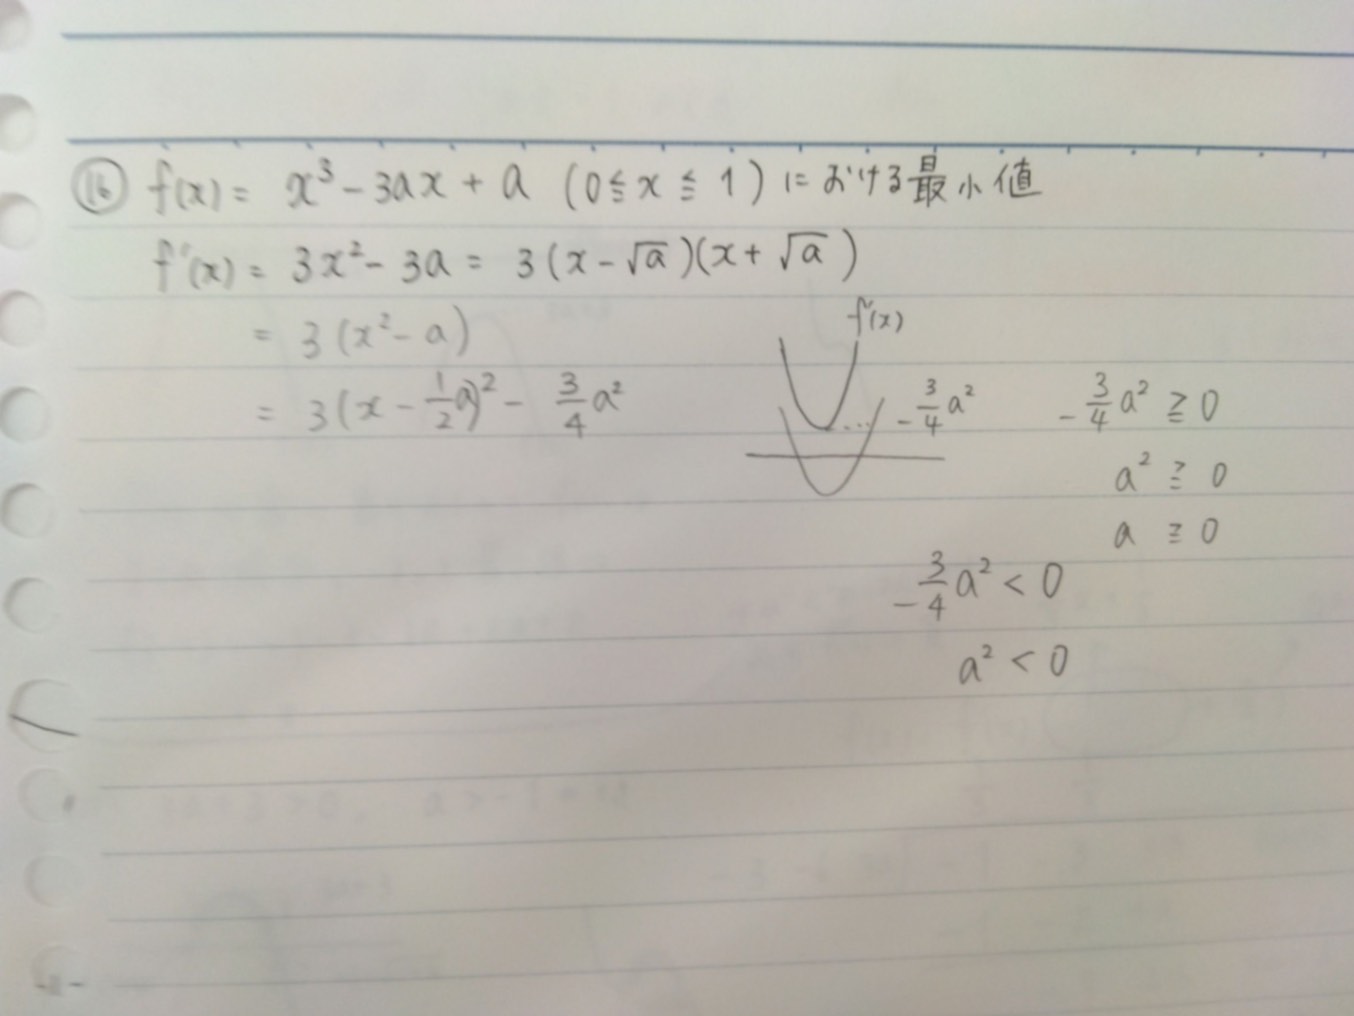 ⑯ f(x) = x³ - 3ax + a (0 ≦ x ≦ 1) における最小値
f'(x) = 3x² - 3a = 3(x - √a)(x + √a)
= 3(x² - a)
= 3(x - 1/2 a)² - 3/4 a²
f'(x)
- 3/4 a²
- 3/4 a² ≧ 0
a² ≧ 0
a ≧ 0
- 3/4 a² < 0
a² < 0